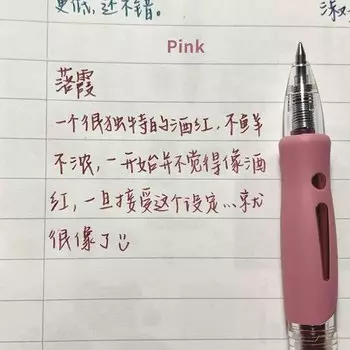 更低,还不错。
Pink
落霞
一个很独特的酒红,不鲜
不浓,一开始并不觉得像酒
红,一旦接受这个设定…就
很像了